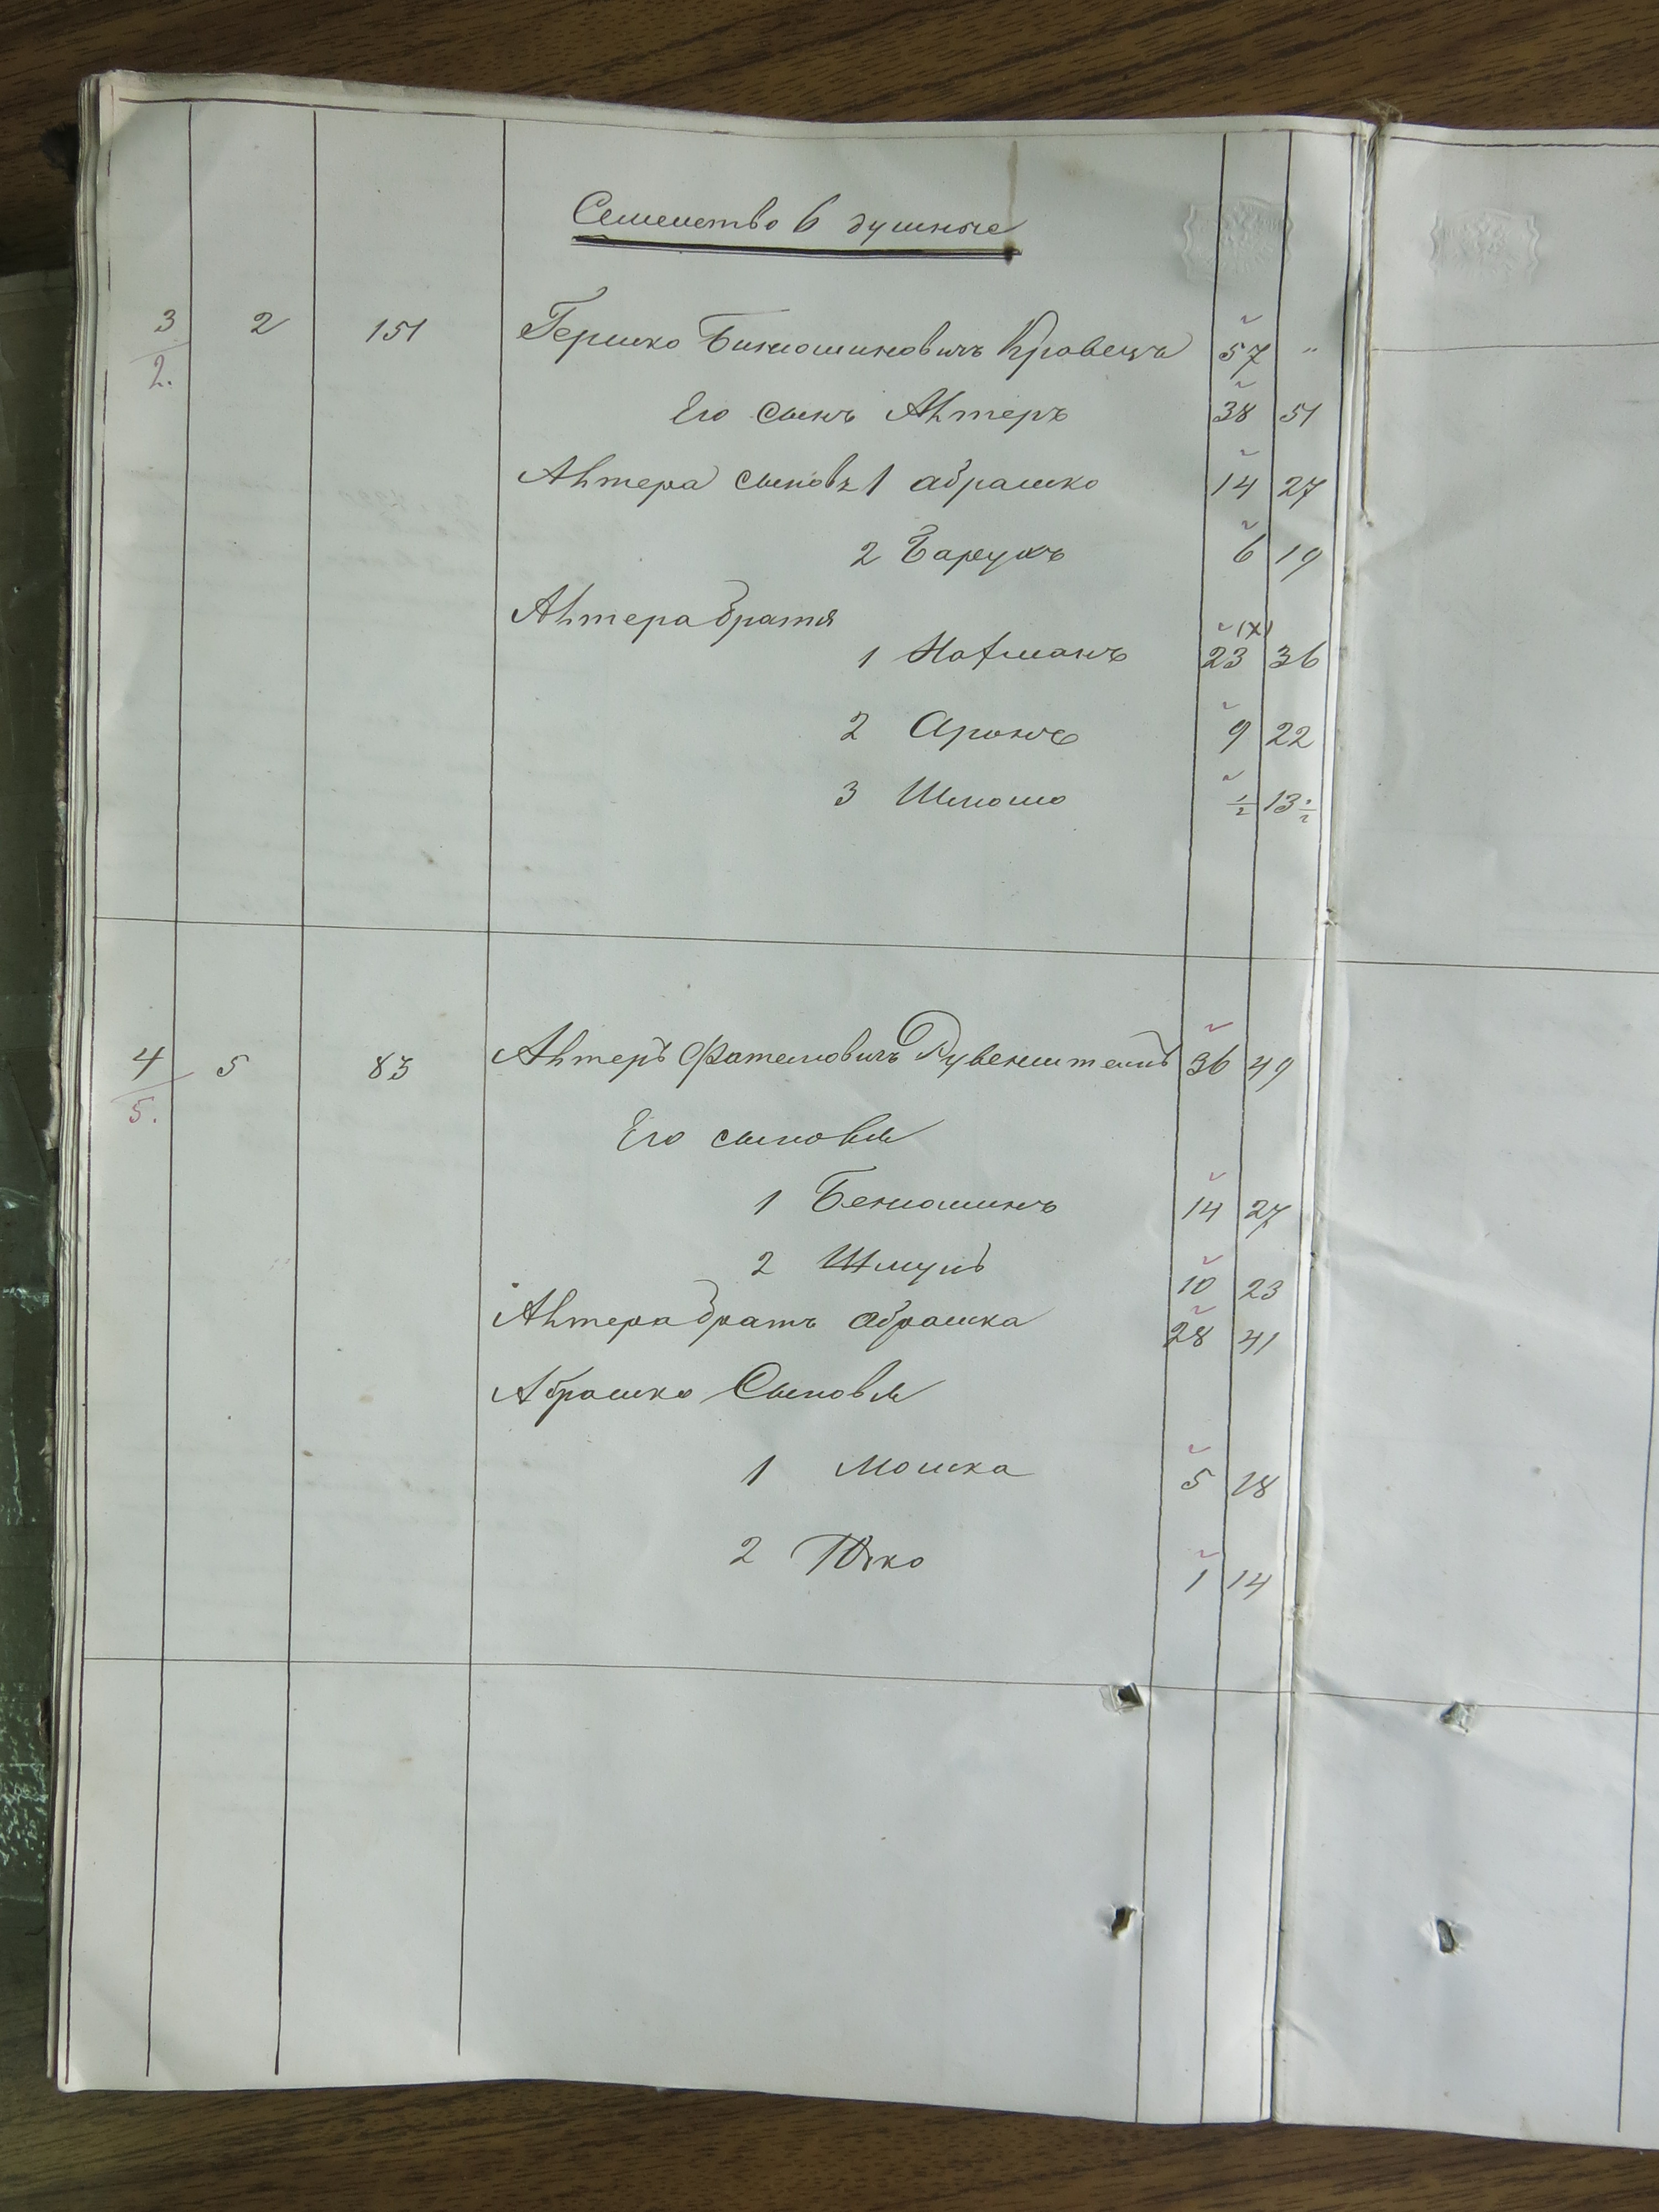 Семейство 6 душные
3/2. 2 151 Гершко Биньоминовичъ Кравецъ 57 "
Его сынъ Антеръ 38 51
Антера сыновъя 1 абрашко 14 27
2 Барухъ 6 19
Антера братя
1 Нафманъ 23 (х) 36
2 Аронъ 9 22
3 Шлиомо 1/2 13 1/2
4/5. 5 83 Антеръ Рувенштейнъ 36 49
Его сыновья
1 Бениоминъ 14 27
2 Шмулъ 10 23
Антера братъ абрашка 28 41
Абрашко Сыновья
1 Мошка 5 18
2 Юско 1 14